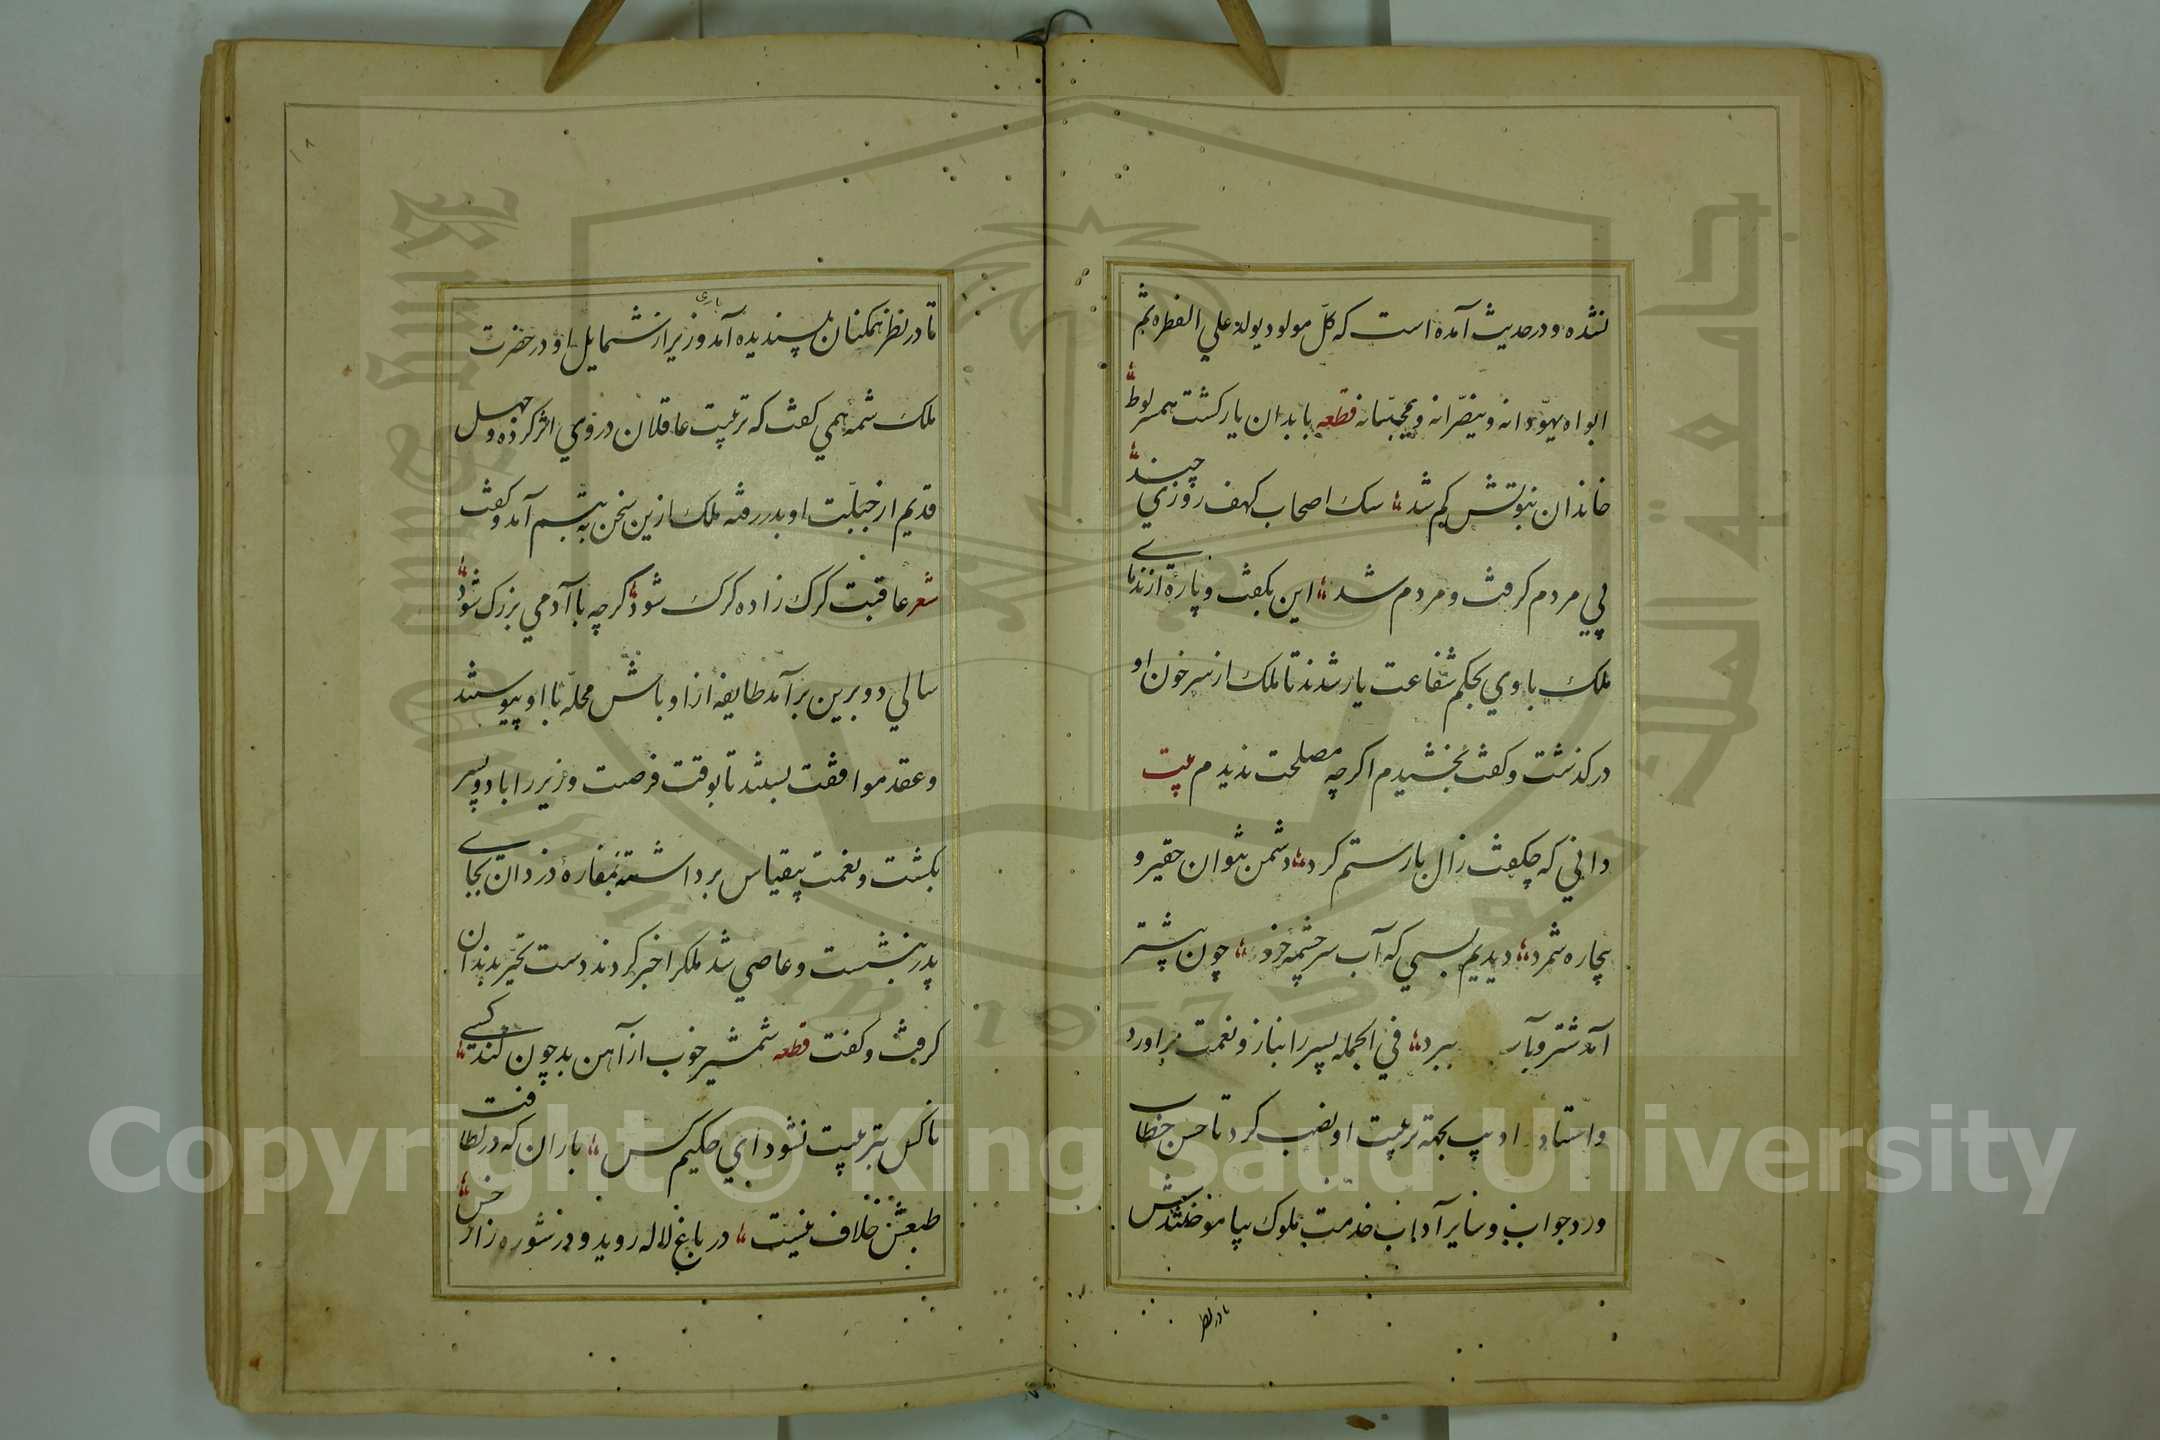 نشده و در حدیث آمده است که کلّ مولود یولد علي الفطره ثم
ابواه یهوّدانه و ینصّرانه و یمجّسانه قطعه با بدان یار کشت همسر لوط
خاندان نبوّتش کم شد سک اصحاب کهف روزي چند
پي مردم کرفت و مردم شد این بکفت و پارۀ از ندماے
ملک با وي بحکم شفاعت یار شدند تا ملک از سر خون او
درکذشت و کفت بخشیدم اکرچه مصلحت ندیدم بیت
داني که چکفت زال با رستم کرد دشمن نتوان حقیر و
بیچاره شمرد دیدیم بسي که آب سر چشمه خرد چون بیشتر
آمد شتر و بار ببرد في الجمله پسر را بناز و نعمت براورد
و استاد ادیب بجهة تربیت او نصب کرد تا حسن خطاب
و رد جواب و سایر آداب خدمت ملوک بیاموختندش
تا در نظر
تا در نظر همکنان پسندیده آمد باری وزیر از شمایل او در حضرت
ملک شمه همي کفت که تربیت عاقلان در وي اثر کرده و جهل
قدیم از جبلّت او بدر رفته ملک ازین سخن به تبسم آمد و کفت
شعر عاقبت کرک زاده کرک شود کرچه با آدمي بزرک شود
سالي دو برین برآمد طایفه از اوباش محلّه با او پیوستند
و عقد موافقت بستند تا بوقت فرصت وزیر را با دو پسر
بکشت و نعمت بیقیاس برداشته بمغارۀ دزدان بجاے
پدر بنشست و عاصي شد ملک را خبر کردند دست تحیّر بدندان
کرفت و کفت قطعه شمشیر خوب از آهن بد چون کند کسے
ناکس بتربیت نشود اي حکیم کس باران که در لطافت
طبعش خلاف نیست در باغ لاله روید و در شوره زار خس
۱۸
جامعة الملك سعود
King Saud University
1957
Copyright © King Saud University